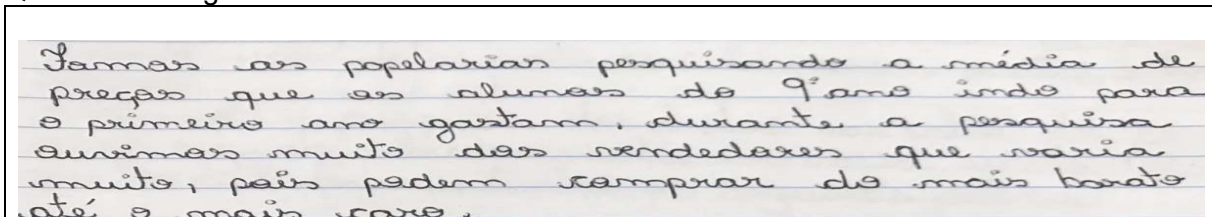 Fomos as papelarias pesquisando a média de
preços que os alunos do 9º ano indo para
o primeiro ano gastam, durante a pesquisa
ouvimos muito dos vendedores que varia
muito, pois podem comprar do mais barato
até o mais caro.